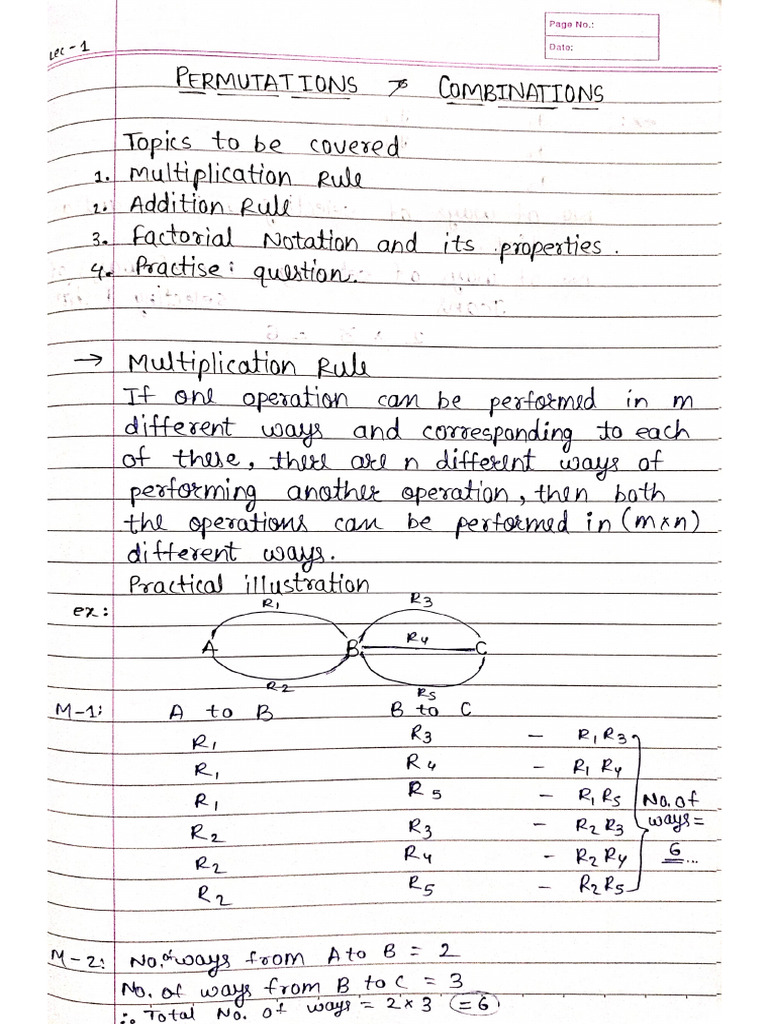 Page No.:
Date:
Lec-1
PERMUTATIONS & COMBINATIONS
Topics to be covered
1. Multiplication Rule
2. Addition Rule
3. Factorial Notation and its properties.
4. Practise: question.
→ Multiplication Rule
If one operation can be performed in m
different ways and corresponding to each
of these, there are n different ways of
performing another operation, then both
the operations can be performed in (m×n)
different ways.
Practical illustration
ex:
R1 R3
A B R4 C
R2 R5
M-1: A to B B to C
R1 R3 - R1R3
R1 R4 - R1 R4
R1 R5 - R1 R5
R2 R3 - R2 R3
R2 R4 - R2 R4
R2 R5 - R2 R5
No. of
ways =
6...
M-2: No. of ways from A to B = 2
No. of ways from B to C = 3
∴ Total No. of ways = 2 × 3 = 6